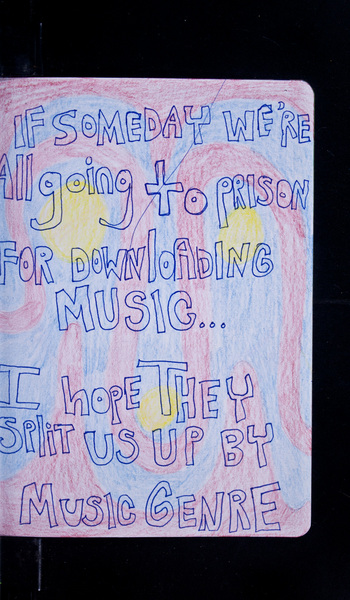 IF SOMEDAY WE'RE
All going to PRISON
FOR DOWNlOADING
MUSIC...
I hOPE THEY
SPliT US UP BY
MUSIC GENRE